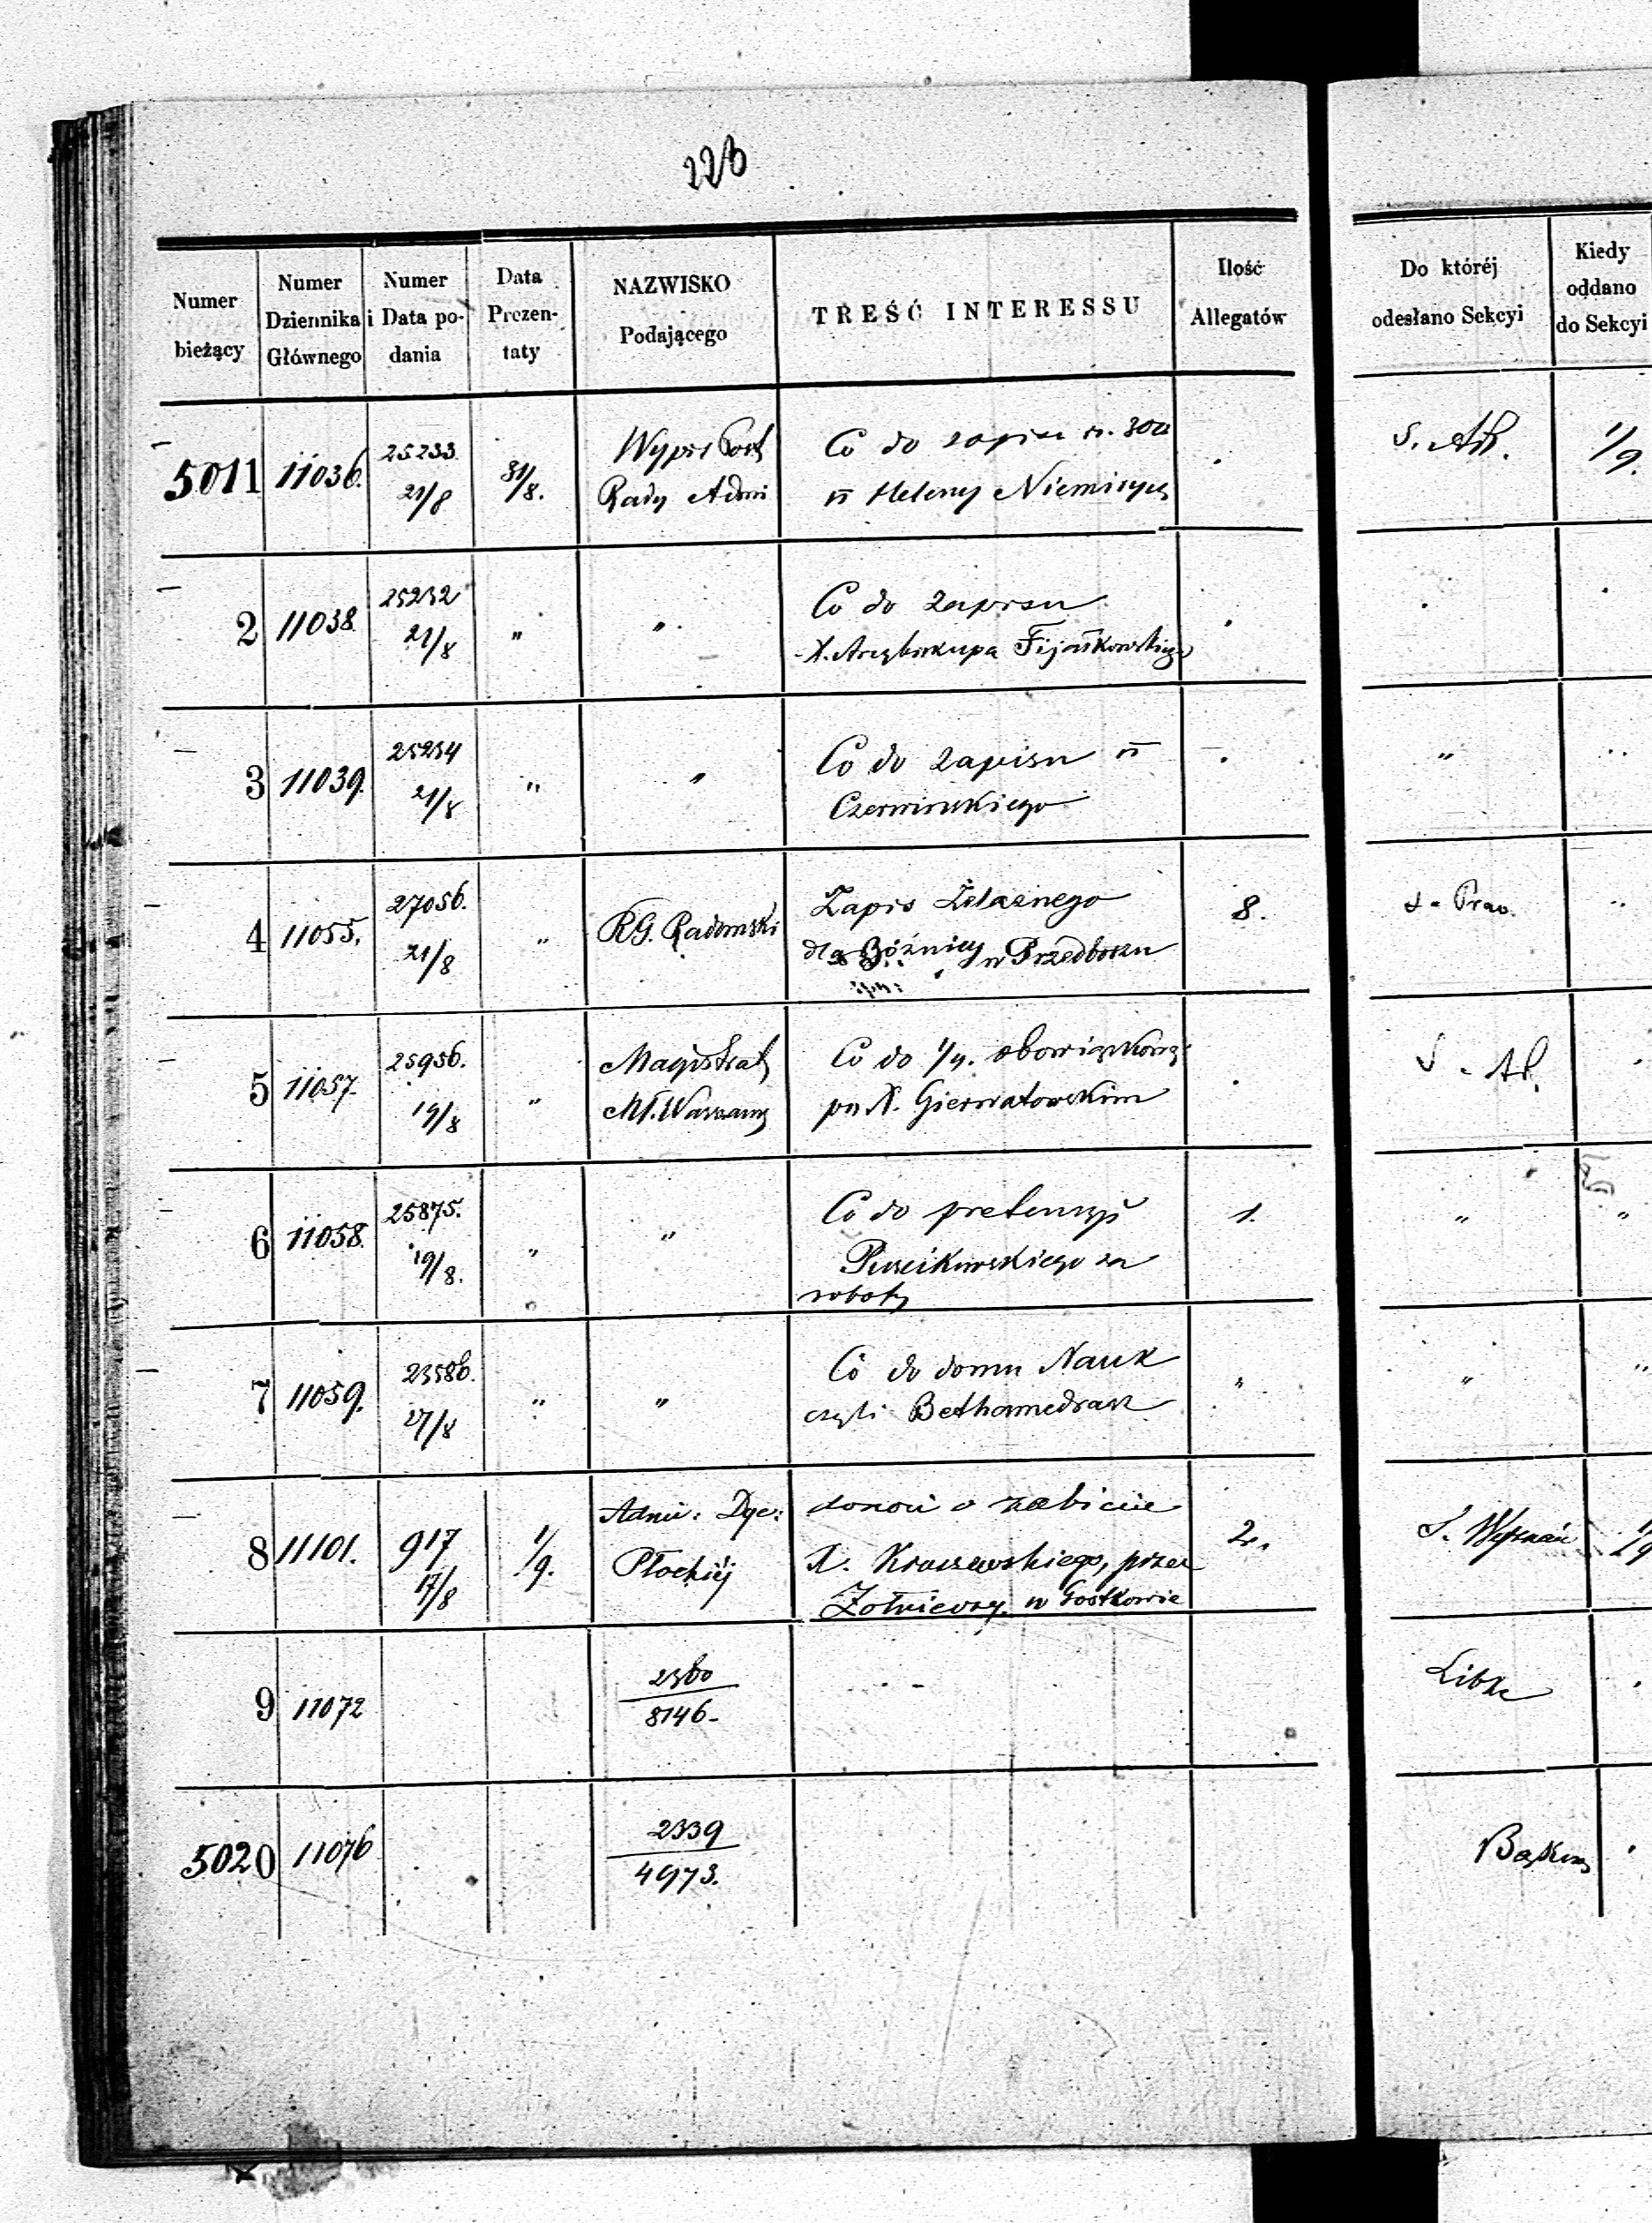 226
Numer bieżący
Numer Dziennika Głównego
Numer i Data podania
Data Prezentaty
NAZWISKO Podającego
TREŚĆ INTERESSU
Ilość Allegatów
Do któréj odesłano Sekcyi
Kiedy oddano do Sekcyi
5011 11036. 25233. 21/8 31/8. Co do zapisu rs. 300 S. Ad. 1/9.
Rady Admi Heleny
2 11038. 25232 21/8 " " Co do Zapisu
X. Arcybiskupa Fijałkowskiego
3 11039. 25234 21/8 " " Co do Zapisu "
Czerwińskiego
4 11055. 27056. 21/8 " RG. Radomski Zapis Żelaznego 8. S. Praw. "
dla Bóźnicy w Przedborzu
5 11057. 25956. 19/8 " Magistrat Co do 1/4. S. Ad.
M. Warszawy
6 11058. 25875. 19/8. " " Co do pretensyi 1. " "
za
roboty
7 11059. 23586. 27/8 " " Co do domu Nauk " " "
czyli Bethamedrasz
8 11101. 917 17/8 1/9. Admi: Dyc: donosi o zabicie 2. S. Wyznań 1/9
Płockiéj X. Kraszewskiego, przez
Żołnierzy w Gostkowie
9 11072 2360 Libke
8146.
5020 11076 2339
4973.